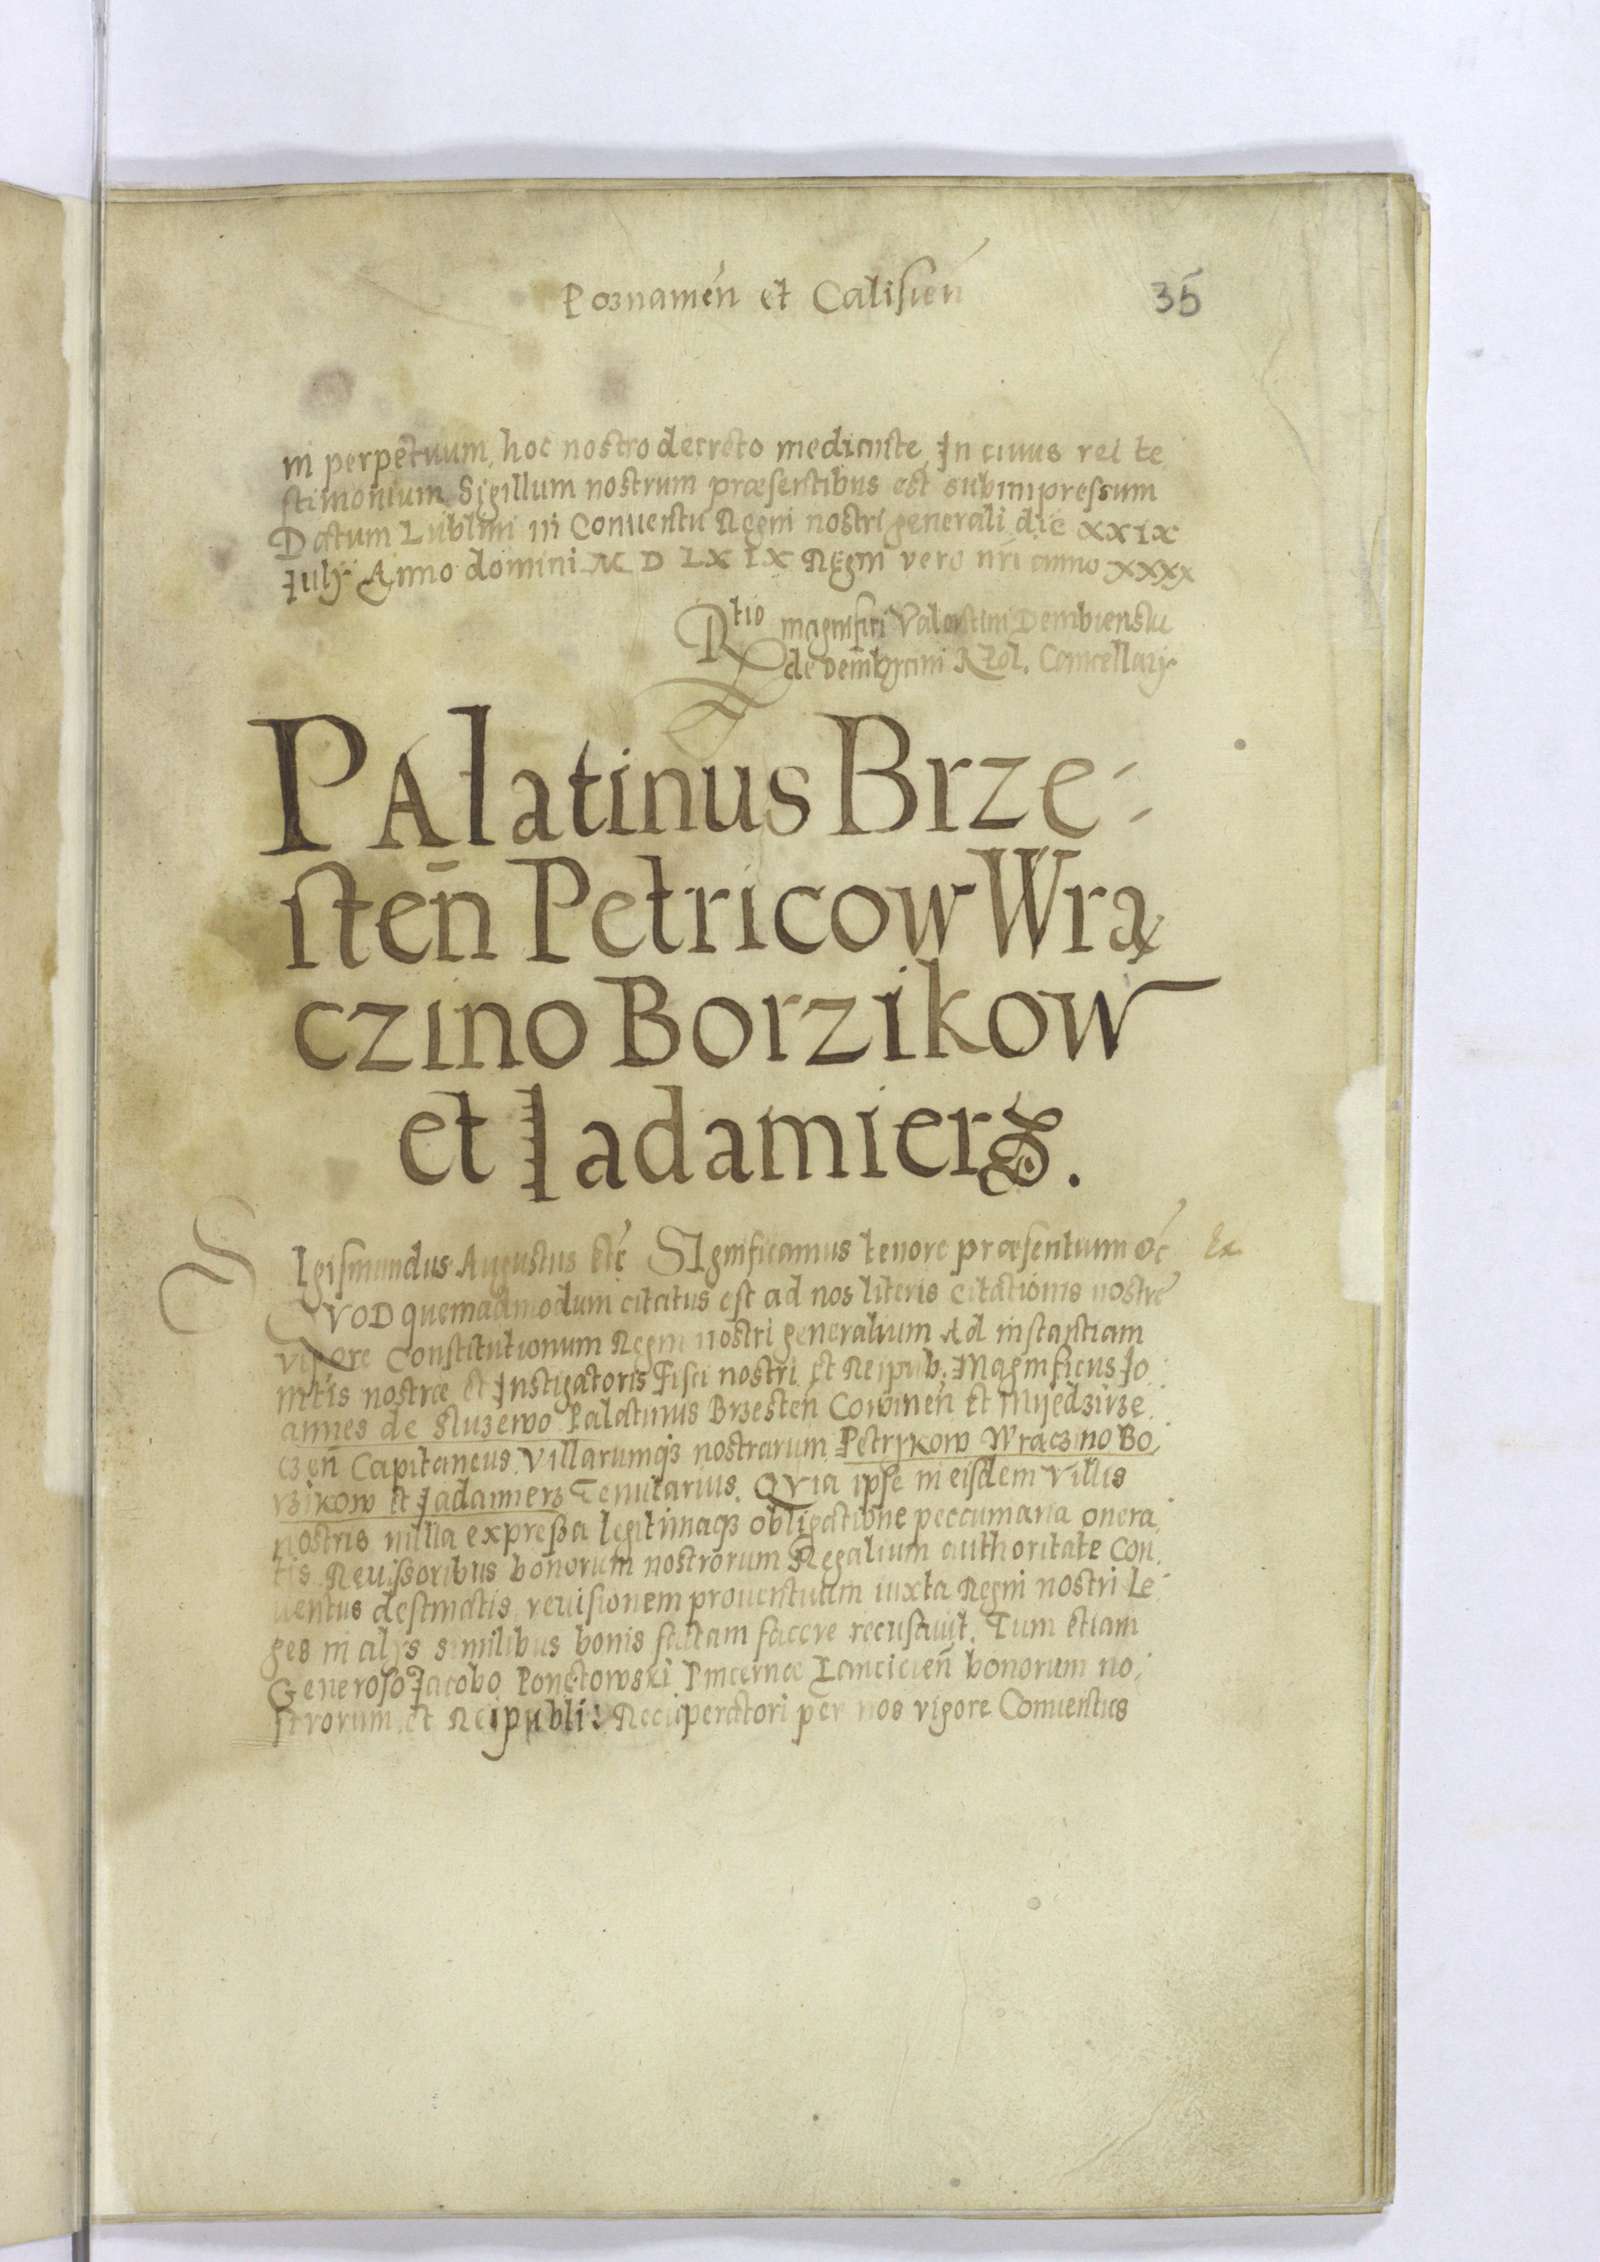 Poznanień et Calisień
35
in perpetuum, hoc nostro decreto mediante, In cuius rei te
stimonium Sigillum nostrum præsentibus est subimpressum
Datum Lublini in Conuentu Regni nostri generali die XXIX
Iulij Anno domini M D LX IX Regni vero nŕi anno XXXX
Rtio magnifici Valentini Dembienski
de Dembyani R Pol. Cancellarij
PAlatinus Brze-
steñ Petricow Wrą
czino Borzikow
et Iadamierz.
SIgismundus Augustus etć SIgnificamus tenore præsentium &ć Ex
QVOD quemadmodum citatus est ad nos literis citationis nostre
vigore Constitutionum Regni nostri generalium Ad instantiam
nitis nostræ et Instigatoris Fisci nostri et Reipub: Magnificus Jo
annes de Sluzewo Palatinus Brzesten Cowineñ et Myedzirze
czeñ Capitaneus, Villarumqz nostrarum Petrykow Wraczino Bo
rzikow et Iadamierz Tenutarius. QVia ipse in eisdem Villis
nostris nulla expressa legitimaqz obligatione peccuniaria onera
tis Reuisoribus bonorum nostrorum Regalium authoritate Con
uentus destinatis, reuisionem prouentuum iuxta Regni nostri Le
ges in alijs similibus bonis factam facere recusauit. Tum etiam
Generoso Jacobo Ponetowski Pincernæ Lancicieñ bonorum no
strorum et Reipubli: Recuperatori per nos vigore Conuentus